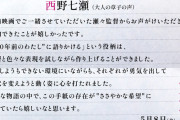 西野七瀬（大人の草子の声）
映画でご一緒させていただいた瀬々監督からお声がけいただき、
できたことが嬉しかったです。
0年前のわたし"に語りかける」という投稿は、
と色々な表現を試しながら作り上げることができました。
しようもできない環境にいながら、それぞれが勇気を出して
を変えようと動く姿に心を打たれました。
な物語の中で、この手紙の存在が"ささやかな希望"に
ていたら嬉しいなと思います。
5月8日